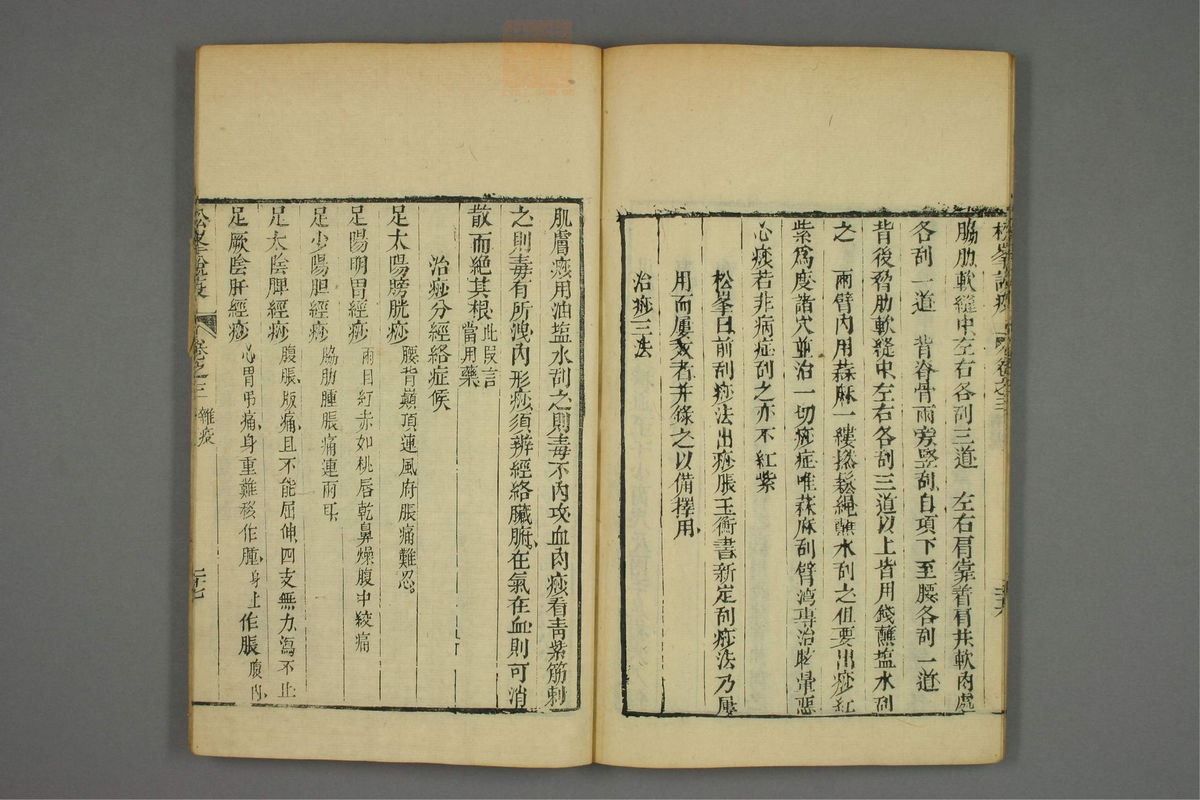 脇肋軟縫中左右各刮三道　左右肩靠着肩井軟肉處
各刮一道　背脊骨兩旁竪刮自項下至腰各刮一道
背後脅肋軟縫中左右各刮三道以上皆用錢蘸塩水刮
之　兩臂內用蔴麻一縷搓鬆繩蘸水刮之但要出痧紅
紫爲度諸穴並治一切痧症唯蔴麻刮臂灣專治眩暈惡
心痧若非病症刮之亦不紅紫
松峯曰前刮痧法出痧脹玉衡書新定刮痧法乃屢
用而屢效者并錄之以備擇用
治痧三法
肌膚痧用油塩水刮之則毒不內攻血肉痧看青紫筋刺
之則毒有所洩內形痧須辨經絡臟腑在氣在血則可消
散而絕其根此段言當用藥
治痧分經絡症候
足太陽膀胱痧腰背巔頂連風府脹痛難忍
足陽明胃經痧兩目紅赤如桃唇乾鼻燥腹中絞痛
足少陽胆經痧脇肋腫脹痛連兩耳
足太陰脾經痧腹脹版痛且不能屈伸四支無力瀉不止
足厥陰肝經痧心胃吊痛身重難移作腫身上作脹腹內
松峯說疫　卷之三　雜疫　二十七